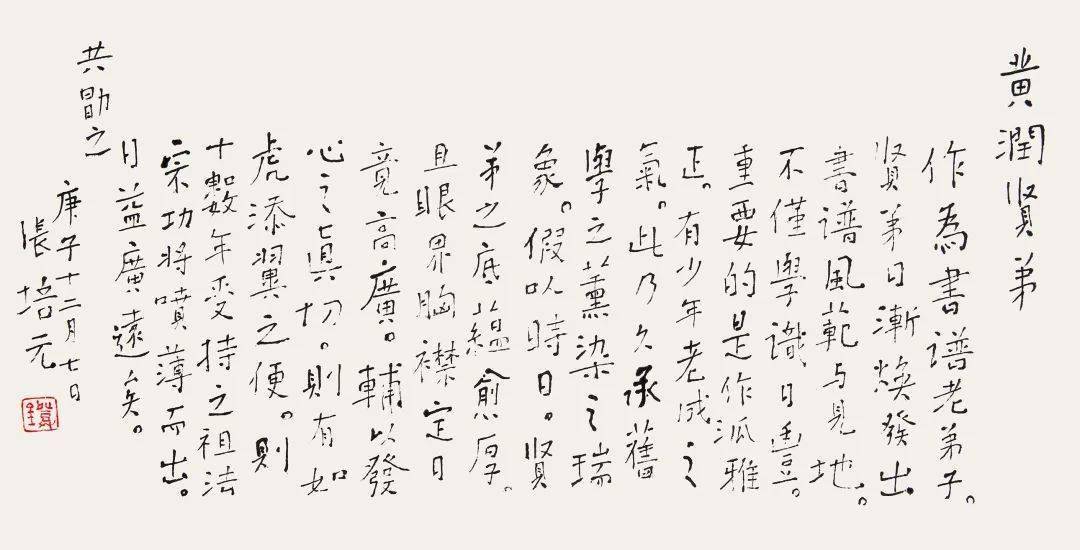 黄潤贤弟
作為書谱老弟子。
贤弟日漸焕發出
書谱風範与見地。
不僅學識日豊。
重要的是作派雅
正。有少年老成之
氣。此乃久承舊
學之薰染之瑞
象。假以時日。贤
弟之底蕴愈厚。
且眼界胸襟定日
竟高廣。輔以發
心之真切。則有如
虎添翼之便。則
十數年受持之祖法
宗功将噴薄而出。
日益廣遠矣。
共勖之
庚子十二月七日
張培元